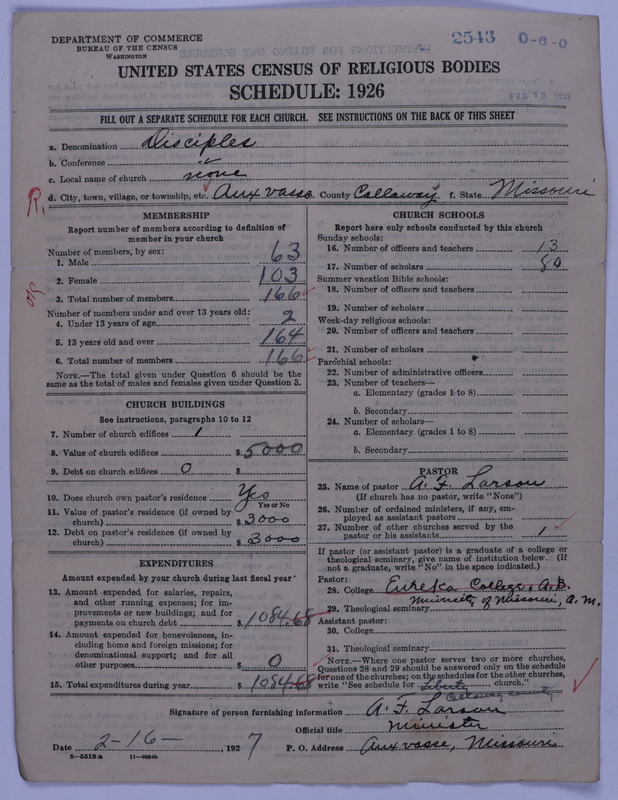 DEPARTMENT OF COMMERCE
BUREAU OF THE CENSUS
WASHINGTON
2543 0-6-0
UNITED STATES CENSUS OF RELIGIOUS BODIES
SCHEDULE: 1926
FILL OUT A SEPARATE SCHEDULE FOR EACH CHURCH. SEE INSTRUCTIONS ON THE BACK OF THIS SHEET
a. Denomination Disciples
b. Conference
c. Local name of church none
R. d. City, town, village, or township, etc. Auxvasse County Callaway f. State Missouri
MEMBERSHIP
Report number of members according to definition of
member in your church
Number of members, by sex:
1. Male 63
2. Female 103
3. Total number of members 166
Number of members under and over 13 years old:
4. Under 13 years of age 2
5. 13 years old and over 164
6. Total number of members 166
NOTE.—The total given under Question 6 should be the
same as the total of males and females given under Question 3.
CHURCH BUILDINGS
See instructions, paragraphs 10 to 12
7. Number of church edifices 1
8. Value of church edifices $5000
9. Debt on church edifices 0 $
10. Does church own pastor's residence Yes
Yes or No
11. Value of pastor's residence (if owned by
church) $3000
12. Debt on pastor's residence (if owned by
church) $3000
EXPENDITURES
Amount expended by your church during last fiscal year
13. Amount expended for salaries, repairs,
and other running expenses; for im-
provements or new buildings; and for
payments on church debt $1084.68
14. Amount expended for benevolences, in-
cluding home and foreign missions; for
denominational support; and for all
other purposes $0
15. Total expenditures during year $1084.68
CHURCH SCHOOLS
Report here only schools conducted by this church
Sunday schools:
16. Number of officers and teachers 13
17. Number of scholars 80
Summer vacation Bible schools:
18. Number of officers and teachers
19. Number of scholars
Week-day religious schools:
20. Number of officers and teachers
21. Number of scholars
Parochial schools:
22. Number of administrative officers
23. Number of teachers—
a. Elementary (grades 1 to 8)
b. Secondary
24. Number of scholars—
a. Elementary (grades 1 to 8)
b. Secondary
PASTOR
25. Name of pastor A. F. Larson
(If church has no pastor, write "None")
26. Number of ordained ministers, if any, em-
ployed as assistant pastors
27. Number of other churches served by the
pastor or his assistants 1
If pastor (or assistant pastor) is a graduate of a college or
theological seminary, give name of institution below. (If
not a graduate, write "No" in the space indicated.)
Pastor:
28. College Eureka College, A.B.
University of Missouri, A.M.
29. Theological seminary
Assistant pastor:
30. College
31. Theological seminary
NOTE.—Where one pastor serves two or more churches,
Questions 28 and 29 should be answered only on the schedule
for one of the churches; on the schedules for the other churches,
write "See schedule for Liberty church."
Callaway County
Signature of person furnishing information A. F. Larson
Official title Minister
Date 2-16- , 1927 P. O. Address Auxvasse, Missouri
8—5518 a